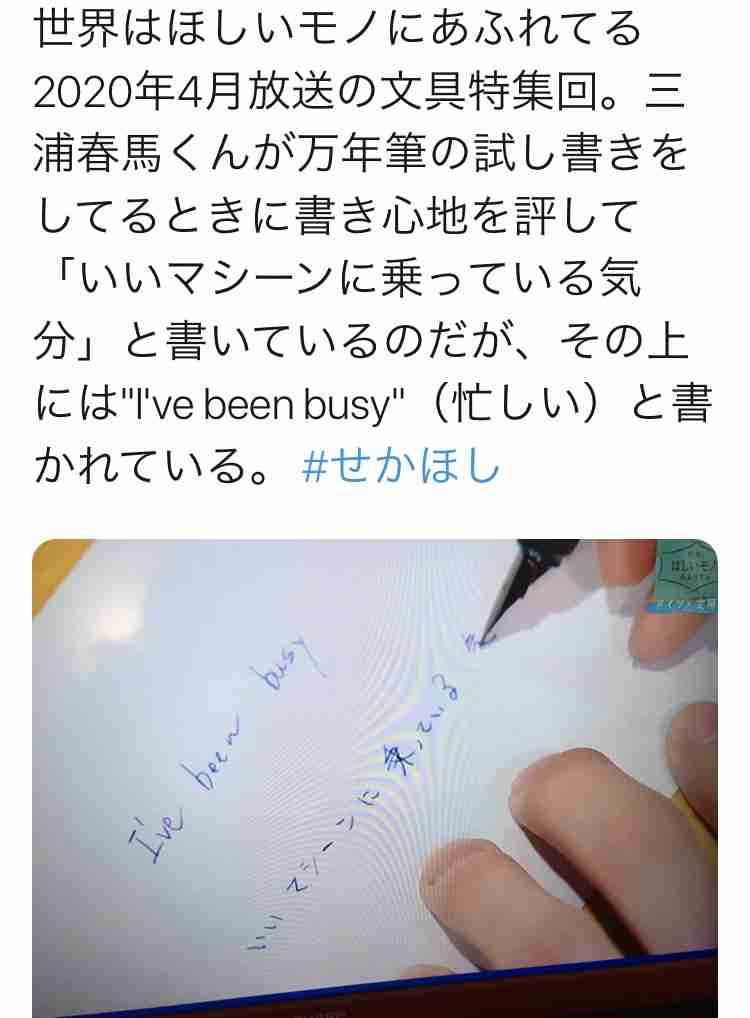 世界はほしいモノにあふれてる
2020年4月放送の文具特集回。三
浦春馬くんが万年筆の試し書きを
してるときに書き心地を評して
「いいマシーンに乗っている気
分」と書いているのだが、その上
には"I've been busy"（忙しい）と書
かれている。 #せかほし
ほしいモノ
I've been busy
いいマシーンに乗っている